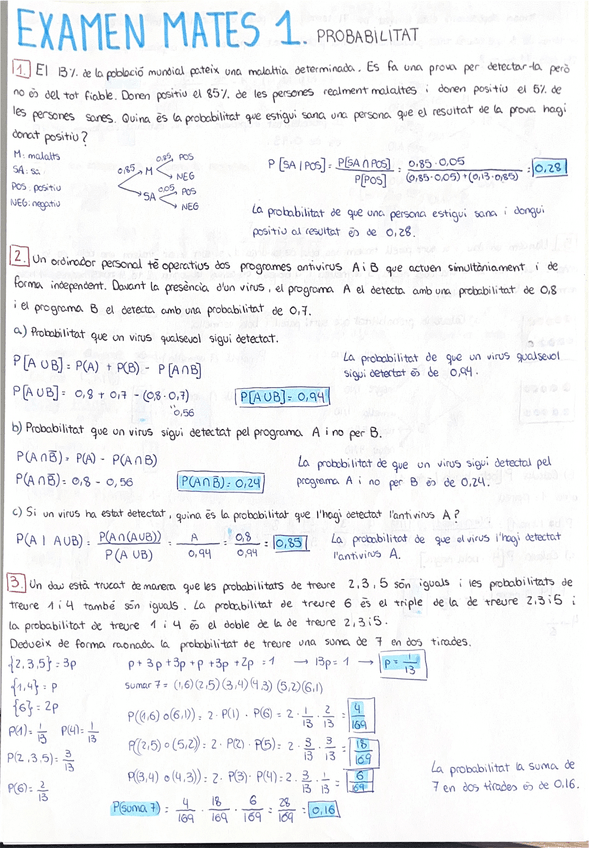 EXAMEN MATES 1. PROBABILITAT
1. El 13% de la població mundial pateix una malaltia determinada. Es fa una prova per detectar-la però
no és del tot fiable. Donen positiu el 85% de les persones realment malaltes i donen positiu el 5% de
les persones sanes. Quina és la probabilitat que estigui sana una persona que el resultat de la prova hagi
donat positiu?
M: malalts
SA: sa
POS: positiu
NEG: negatiu
0,85 M 0,85 POS
NEG
SA 0,05 POS
NEG
P[SA | POS] = P[SA ∩ POS] / P[POS] = 0,85 · 0,05 / (0,85·0,05)+(0,13·0,85) = 0,28
La probabilitat de que una persona estigui sana i dongui
positiu al resultat és de 0,28.
2. Un ordinador personal té operatius dos programes antivirus A i B que actuen simultàniament i de
forma independent. Davant la presència d'un virus, el programa A el detecta amb una probabilitat de 0,8
i el programa B el detecta amb una probabilitat de 0,7.
a) Probabilitat que un virus qualsevol sigui detectat.
P[A ∪ B] = P(A) + P(B) - P[A∩B]
P[A ∪ B] = 0,8 + 0,7 - (0,8·0,7)
0,56
P[A ∪ B] = 0,94
La probabilitat de que un virus qualsevol
sigui detectat és de 0,94.
b) Probabilitat que un virus sigui detectat pel programa A i no per B.
P(A∩B̅) = P(A) - P(A∩B)
P(A∩B̅) = 0,8 - 0,56
P(A∩B̅) = 0,24
La probabilitat de que un virus sigui detectat pel
programa A i no per B és de 0,24.
c) Si un virus ha estat detectat, quina és la probabilitat que l'hagi detectat l'antivirus A?
P(A | A∪B) = P(A∩(A∪B)) / P(A ∪ B) = A / 0,94 = 0,8 / 0,94 = 0,85
La probabilitat de que el virus l'hagi detectat
l'antivirus A.
3. Un dau està trucat de manera que les probabilitats de treure 2,3,5 són iguals i les probabilitats de
treure 1 i 4 també són iguals. La probabilitat de treure 6 és el triple de la de treure 2,3 i 5 i
la probabilitat de treure 1 i 4 és el doble de la de treure 2,3 i 5.
Dedueix de forma raonada la probabilitat de treure una suma de 7 en dos tirades.
{2,3,5} = 3p
{1,4} = p
{6} = 2p
P(1) = 1/13 P(4) = 1/13
P(2,3,5) = 3/13
P(6) = 2/13
p + 3p + 3p + p + 3p + 2p = 1 → 13p = 1 → p = 1/13
sumar 7 = (1,6)(2,5)(3,4)(4,3)(5,2)(6,1)
P((1,6) o (6,1)) = 2 · P(1) · P(6) = 2 · 1/13 · 2/13 = 4/169
P((2,5) o (5,2)) = 2 · P(2) · P(5) = 2 · 3/13 · 3/13 = 18/169
P(3,4) o (4,3)) = 2 · P(3) · P(4) = 2 · 3/13 · 1/13 = 6/169
P(suma 7) = 4/169 · 18/169 · 6/169 = 28/169 = 0,16
La probabilitat la suma de
7 en dos tirades és de 0,16.